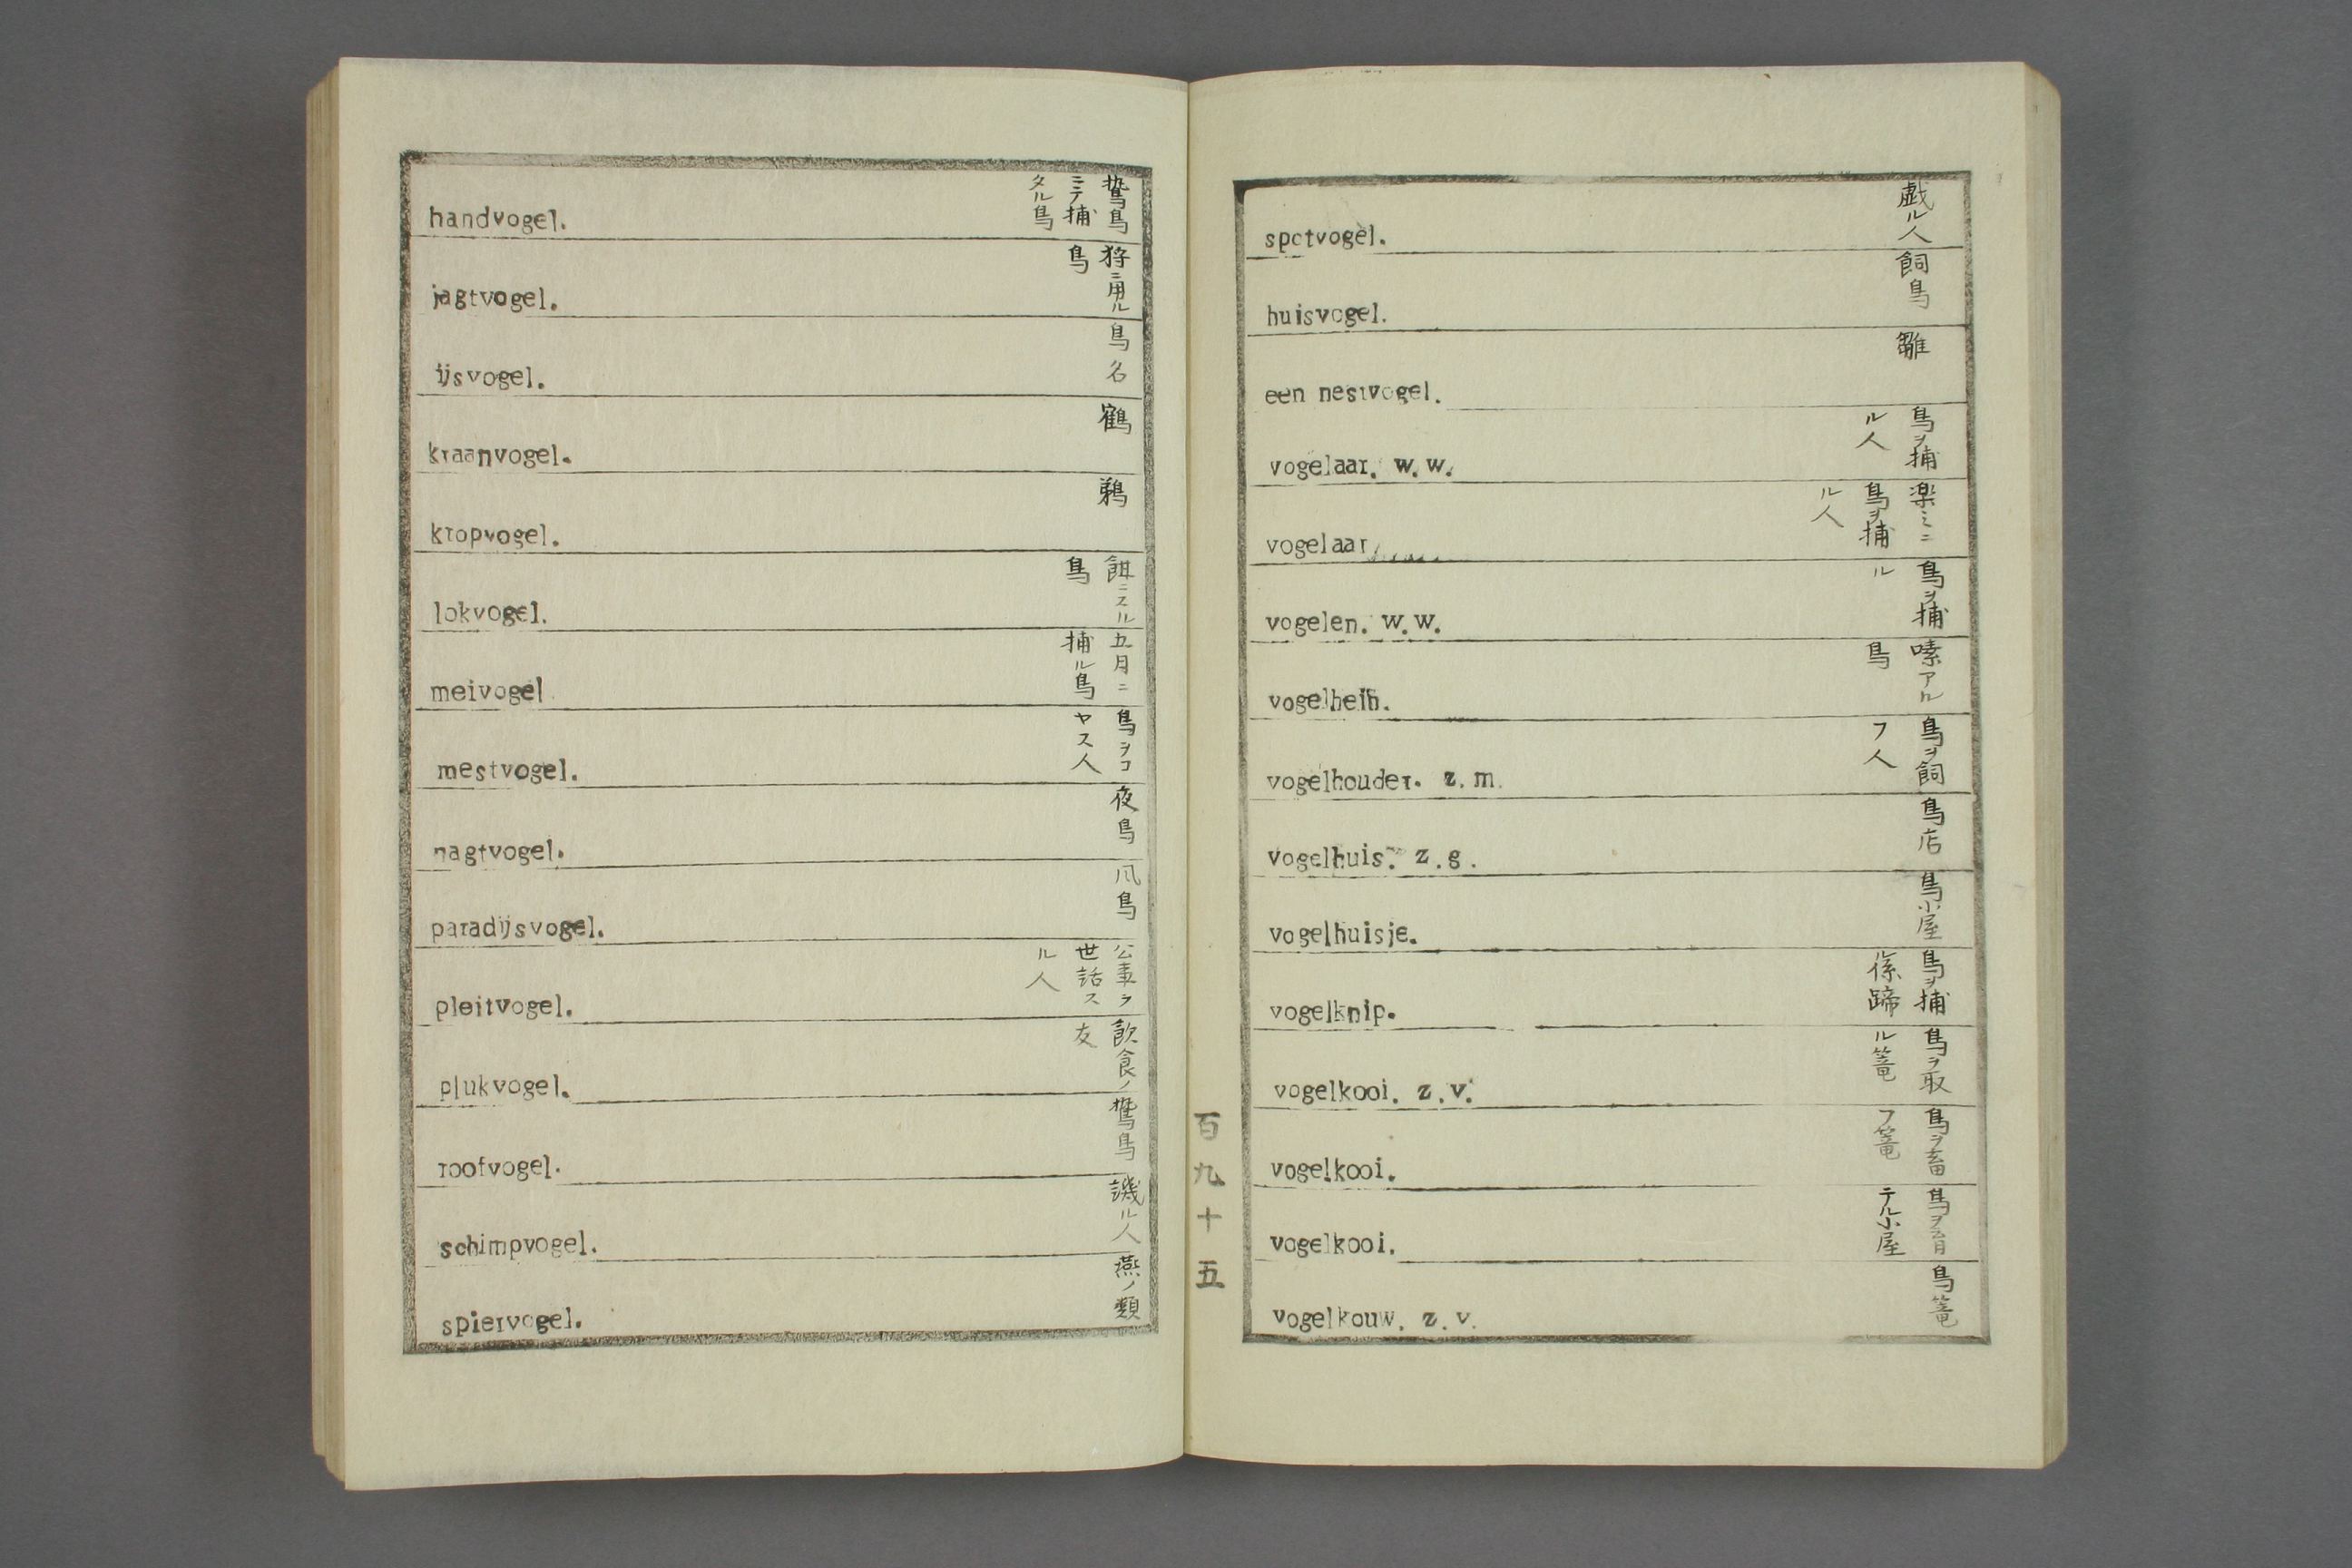 handvogel. 鷙鳥ニテ捕タル鳥
jagtvogel. 狩ニ用ル鳥
ijsvogel. 鳥名
kraanvogel. 鶴
kropvogel. 鵜
lokvogel. 餌ニスル鳥
meivogel 五月ニ捕ル鳥
mestvogel. 鳥ヲコヤス人
nagtvogel. 夜鳥
paradijsvogel. 風鳥
pleitvogel. 公事ヲ世話スル人
plukvogel. 飲食ノ友
roofvogel. 鷙鳥
schimpvogel. 譏ル人
spiervogel. 燕ノ類
百九十五
spotvogel. 戯ル人
huisvogel. 飼鳥
een nestvogel. 雛
vogelaar. w.w. 鳥ヲ捕ル人
vogelaar 楽ミニ鳥ヲ捕ル人
vogelen. w.w. 鳥ヲ捕ル
鳥
vogelhouder. z.m. 鳥ヲ飼フ人
vogelhuis. z.g. 鳥店
vogelhuisje. 鳥小屋
vogelknip. 鳥ヲ捕ル係蹄
vogelkooi. z.v. 鳥ヲ取ル篭
vogelkooi. 鳥ヲ畜フ篭
vogelkooi. 鳥ヲ育テル小屋
vogelkouw. z.v. 鳥篭